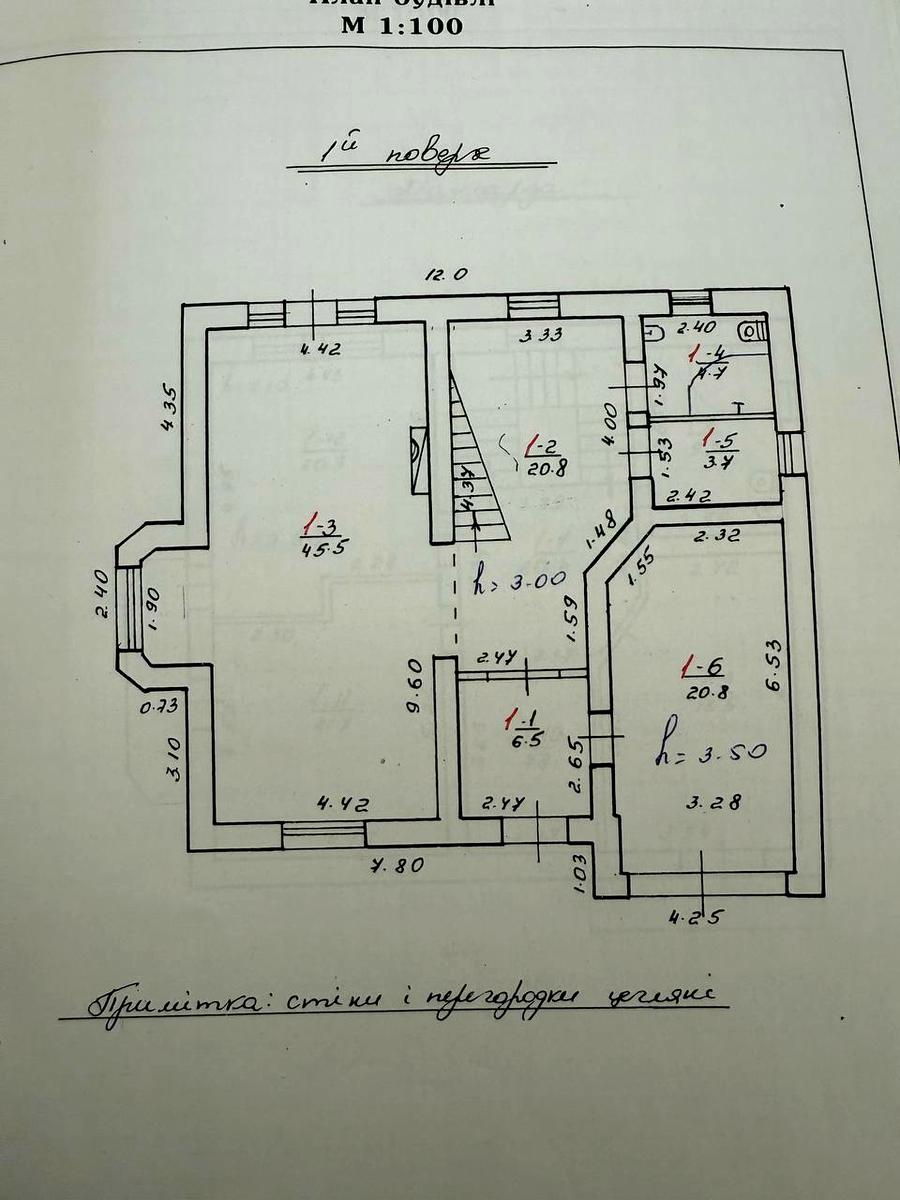 План будівлі
М 1:100
1й поверх
12.0
4.42
3.33
2.40
1-4
4.7
1.97
4.35
4.00
1-5
3.7
1.53
1-2
20.8
4.37
2.42
1-3
45.5
1.48
2.32
1.55
h= 3.00
2.40
1.90
1.59
2.47
9.60
1-6
20.8
6.53
0.73
1-1
6.5
h= 3.50
3.10
2.65
4.42
2.47
3.28
7.80
1.03
4.25
Примітка: стіни і перегородки цегляні